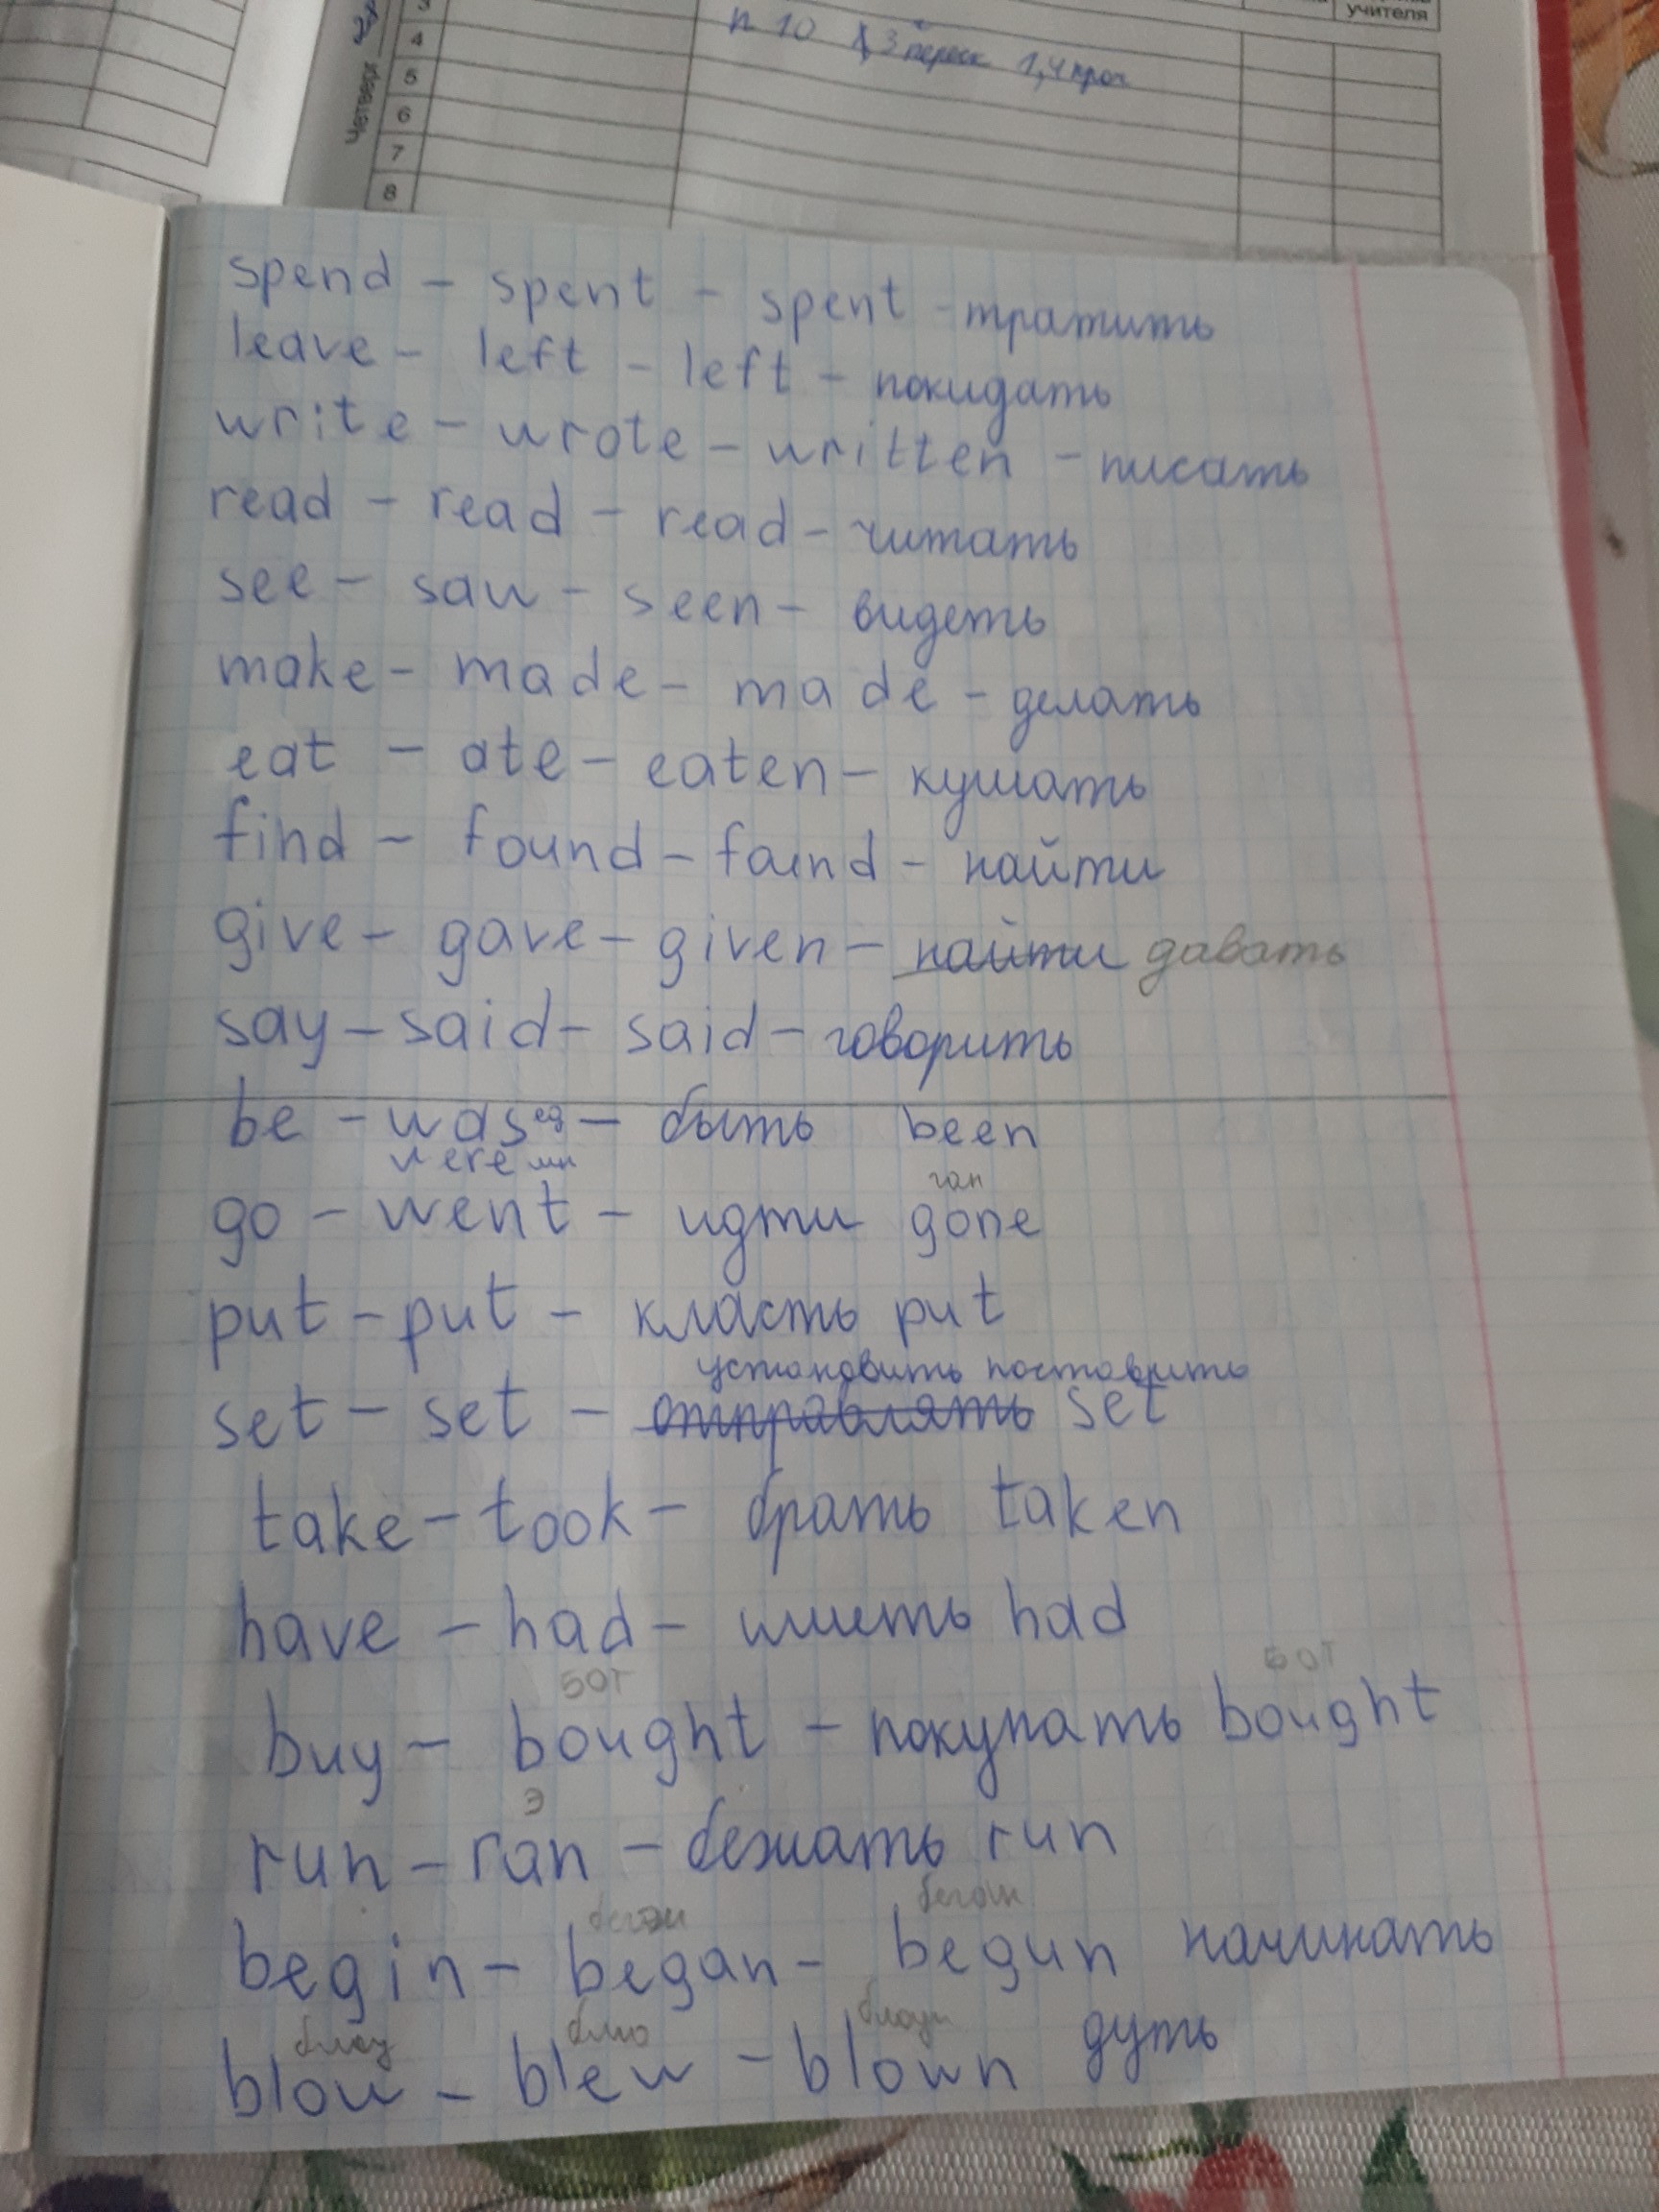 учителя
3
4
п 10 § 3 переск 1,4
5
6
7
8
Четверг
spend - spent - spent - тратить
leave - left - left - покидать
write - wrote - written - писать
read - read - read - читать
see - saw - seen - видеть
make - made - made - делать
eat - ate - eaten - кушать
find - found - found - найти
give - gave - given - найти давать
say - said - said - говорить
be - was ед - быть been
were мн
ган
go - went - идти gone
put - put - класть put
установить поставить
set - set - отправлять set
take - took - брать taken
have - had - иметь had
бот бот
buy - bought - покупать bought
э
run - ran - бежать run
бегэн беган
begin - began - begun начинать
блоу блю блоун
blow - blew - blown дуть